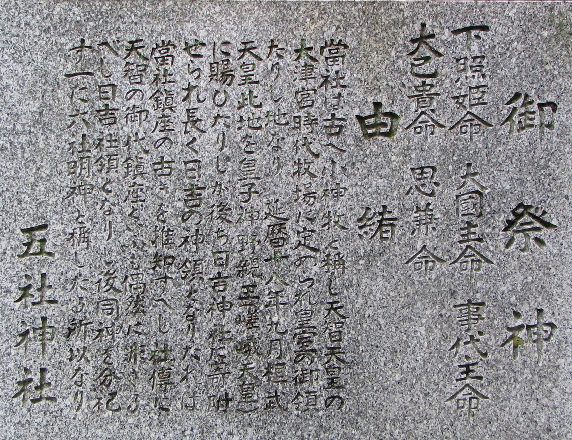 御祭神
下照姫命 大国主命 事代主命
大己貴命 思兼命
由緒
當社は古へ小神牧と称し天智天皇の
大津宮時代牧場に定められ皇室の御領
たりし地なり 延暦十八年九月桓武
天皇此地を皇子神野親王嵯峨天皇
に賜ひたりしが後ち日吉神社に寄附
せられ長く日吉の神領となりたれば
當社鎮座の古きを推知すべし社傳に
天智の御代鎮座と
べし日吉社領となりし後同神を分祀
す一に六社明神と稱したる所以なり
五社神社